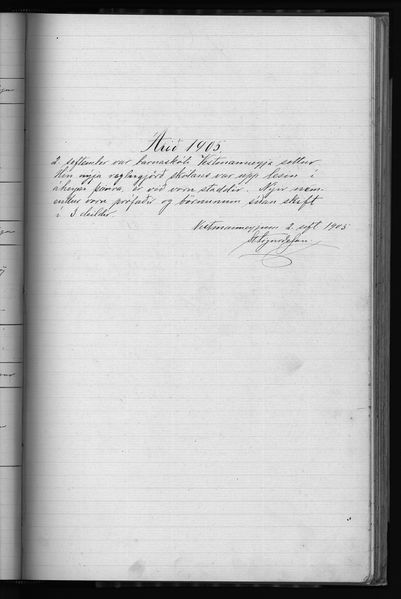 Árið 1905.
2. september var barnaskóli Vestmannaeyja settur.
Hin nýja reglugjörð skólans var upp lesin í
áheyrn þeirra, er við voru staddir. Nýir nem-
endur voru prófaðir og börnunum síðan skift
í 3 deildir.
Vestmannaeyjum 2. sept. 1905
St. Sigurðsson